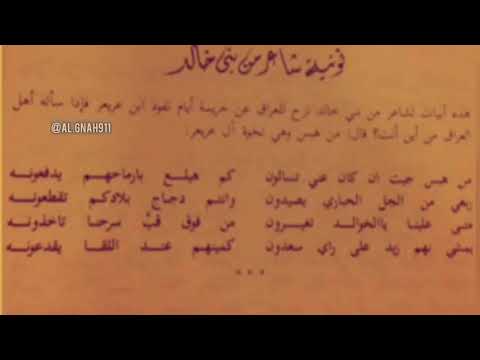 فونية شاعر من بني خالد
هذه أبيات لشاعر من بني خالد نزح للعراق عن جريمة أيام نفوذ ابن عريعر فإذا سأله أهل
العراق من أين أنت؟ قال: من هبس وهي نخوة آل عريعر:
@AL.GNAH911
من هبس جيت ان كان عني تسالون كم هيلع بارماحهم يدفعونه
ربعي من الجل الحباري يصيدون وانتم دجاج بلادكم تقطعونه
متى علينا يالخوالد تغيرون من فوق قب سرجها تاخذونه
يمشي بهم زيد على راي سعدون كمينهم عند اللقا يقدعونه
* * *